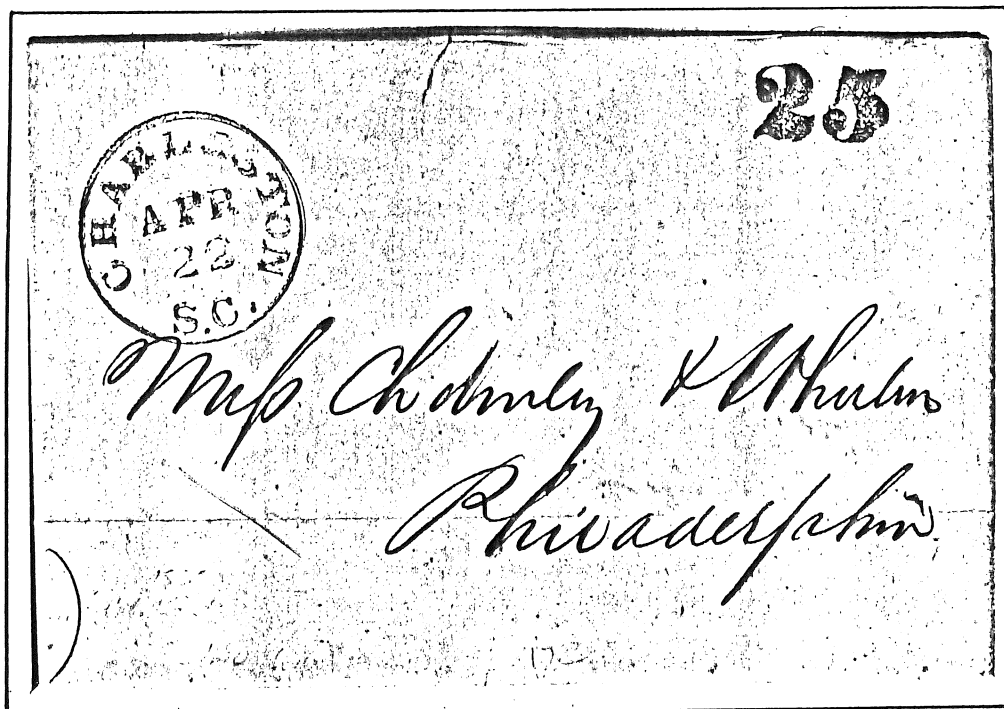 25
CHARLESTON
APR
22
S.C.
Mess Chdmley & Wheelen
Philadelphia.